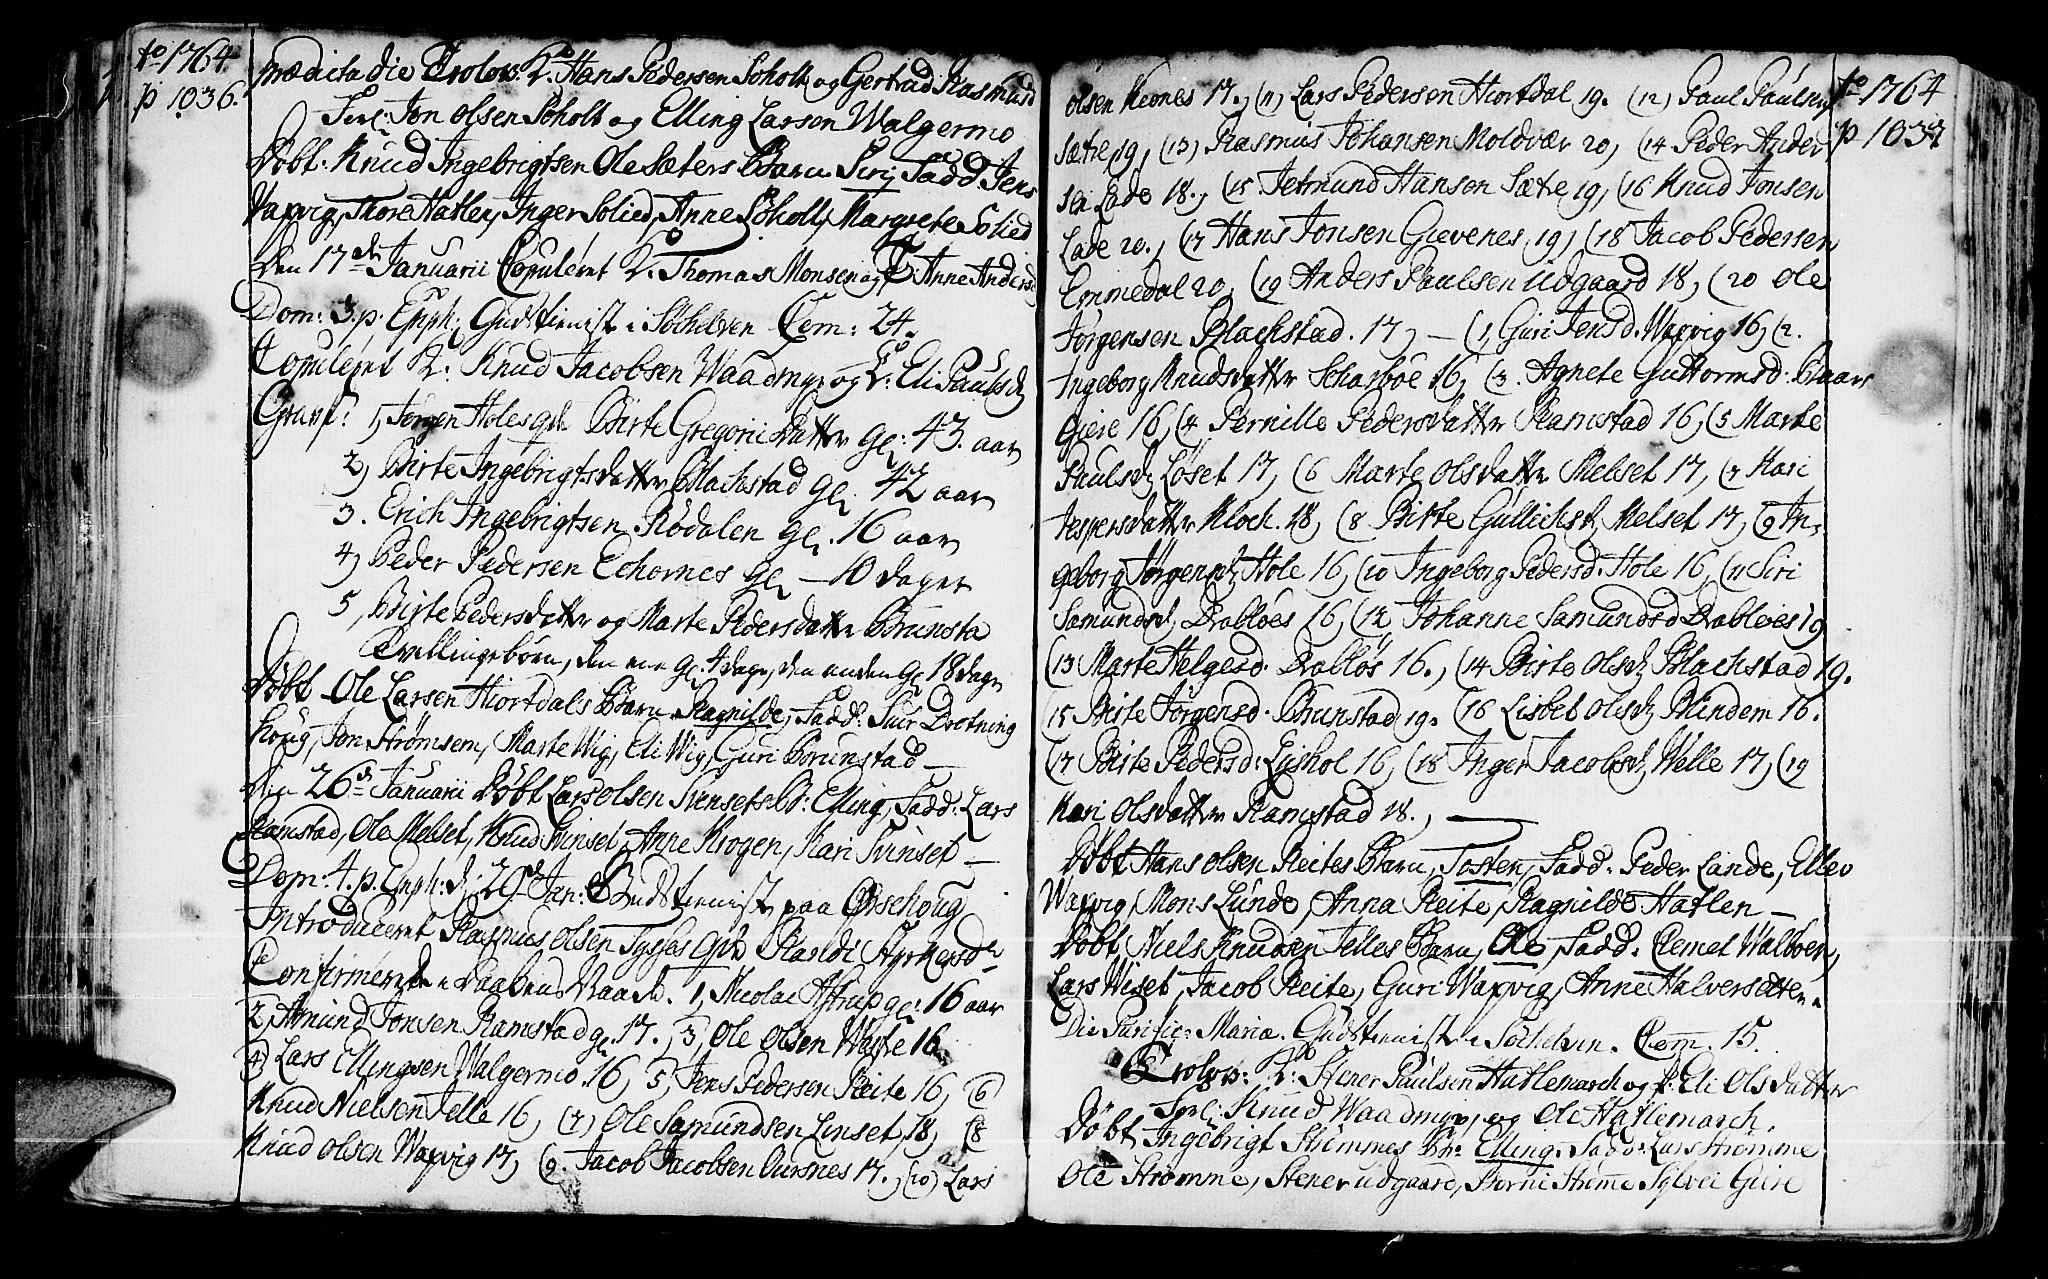 Ao 1764.
p 1036.
prædicta die Trolov: K: Hans Pedersen Søholt og Gertrud Rasmusd
Forl: Jon Olsen Søholt og Elling Larsen Walgermo
Døbt: Knud Ingebrigtsen Ole Sæters Barn Siri, Fadd. Jens
Waxvig, Thore Hatlen, Inger Solied, Anne Søholt, Margrete Solied
Den 17de Januarii Copuleret K: Thomas Monsen og P: Anne Andersd
Dom: 3. p. Epiph: Gudstienist i Søchelven Com: 24.
Copuleret K: Knud Jacobsen Waadmyr og P: Eli Paulsd
Gravf: 1, Jørgen Holes Birte Gregorii datter gl: 43 aar
2) Birte Ingebrigtsdatter Blachstad gl: 42 aar
3. Erich Ingebrigtsen Rødalen gl. 16 aar
4) Peder Pedersen Echornes gl — 10 dager
5, Birte Pedersdatter og Marte Pedersdatter Brunsta
Tvillingebørn, den ene gl. 4 dage, den anden gl 18 dage
Døbt Ole Larsen Hiortdals Barn Ragnilde, Fadd: Siur Drotning
houg, Jon Strømsem, Marte Wig, Eli Wig, Guri Brunstad —
Den 26de Januarii Døbt Lars Olsen Svinsets B: Elling, Fadd: Lars
Ramstad, Ole Melset, Knud Svinset, Anne Krogen, Kari Svinset —
Dom: 4. p. Epiph: d: 29de Jan: Gudstienist paa Ørschoug
Introduceret Rasmus Olsen Tysses Randi Styrkersd
Confirmerede 1, Nicolai Astrup gl: 16 aar
2, Amund Jonsen Ramstad gl. 17. , 3, Ole Olsen Waxe 16
4) Lars Ellingsen Walgermo 16, 5, Jens Pedersen Reite 16, (6
Knud Nielsen Telle 16, (7) Ole Samundsen Linset, 18, (8
Knud Olsen Waxvig 17, (9. Jacob Jacobsen Aursnes 17. , (10) Lars
Ao 1764
p 1037
Olsen Reones 17. , (11) Lars Pedersen Hiortdal 19. (12) Paul Paulsen
Sætre 19, (13) Rasmus Johansen Moldvær 20, (14 Peder Ander
sen Lade 18. , (15 Jetmund Hansen Sætre 19, (16 Knud Jonsen
Lade 20. , (17 Hans Jonsen Gievenes, 19, (18 Jacob Pedersen
Emmedal 20, (19 Anders Paulsen Udgaard 18, (20 Ole
Jørgensen Blachstad. 17, — (1, Guri Jensd. Waxvig 16, (2.
Ingeborg Knudsdatter Scharbøe 16, (3. Agnete Guttormsd: Baars
Giere 16, (4 Pernille Pedersdatter Ramstad 16, (5 Marte
Paulsd Løset 17, (6 Marte Olsdatter Melset 17, (7 Kari
Jespersdatter Kloch. 18, (8 Birte Gullichsd Melset 17, (9 In,
geborg Jørgensd Hole 16, (10 Ingeborg Pedersd. Hole 16, (11 Siri
Samundsd. Drabløes 16, (12 Johanne Samundsd Drabløes 19
(13 Marte Helgesd. Drabløs 16. , (14 Birte Olsd Blachstad 19.
(15 Birte Jørgensd. Brunstad 19. (16 Lisbet Olsd Blindem 16.
(17 Birte Pedersd: Lijshol 16, (18 Inger Jacobsd, Welle 17, (19
Kari Olsdatter Ramstad 18. , —
Døbt Hans Olsen Reites Barn, Tosten, Fadd: Peder Lande, Ellev
Waxvig, Mons Lunde, Anna Reite, Ragnilde Hatlen —
Døbt, Niels Knudsen Telles Barn, Ole, Fadd: Clemet Walboen,
Lars Wiset, Jacob Reite, Guri Waxvig, Anne Halversetter.
Die Purific: Mariæ. Gudstienist i Søchelven. Com. 15.
Trolov: K: Stener Paulsen Hatlemarch og P: Eli Olsdatter
Forl: Knud Waadmyr, og Ole Hatlemarch.
Døbt Ingebrigt Strømmes Bn: Elling, Fadd: Lars Strømme
Ole Strømme, Stener Udgaard, Børni Strøme Sylvei Giære